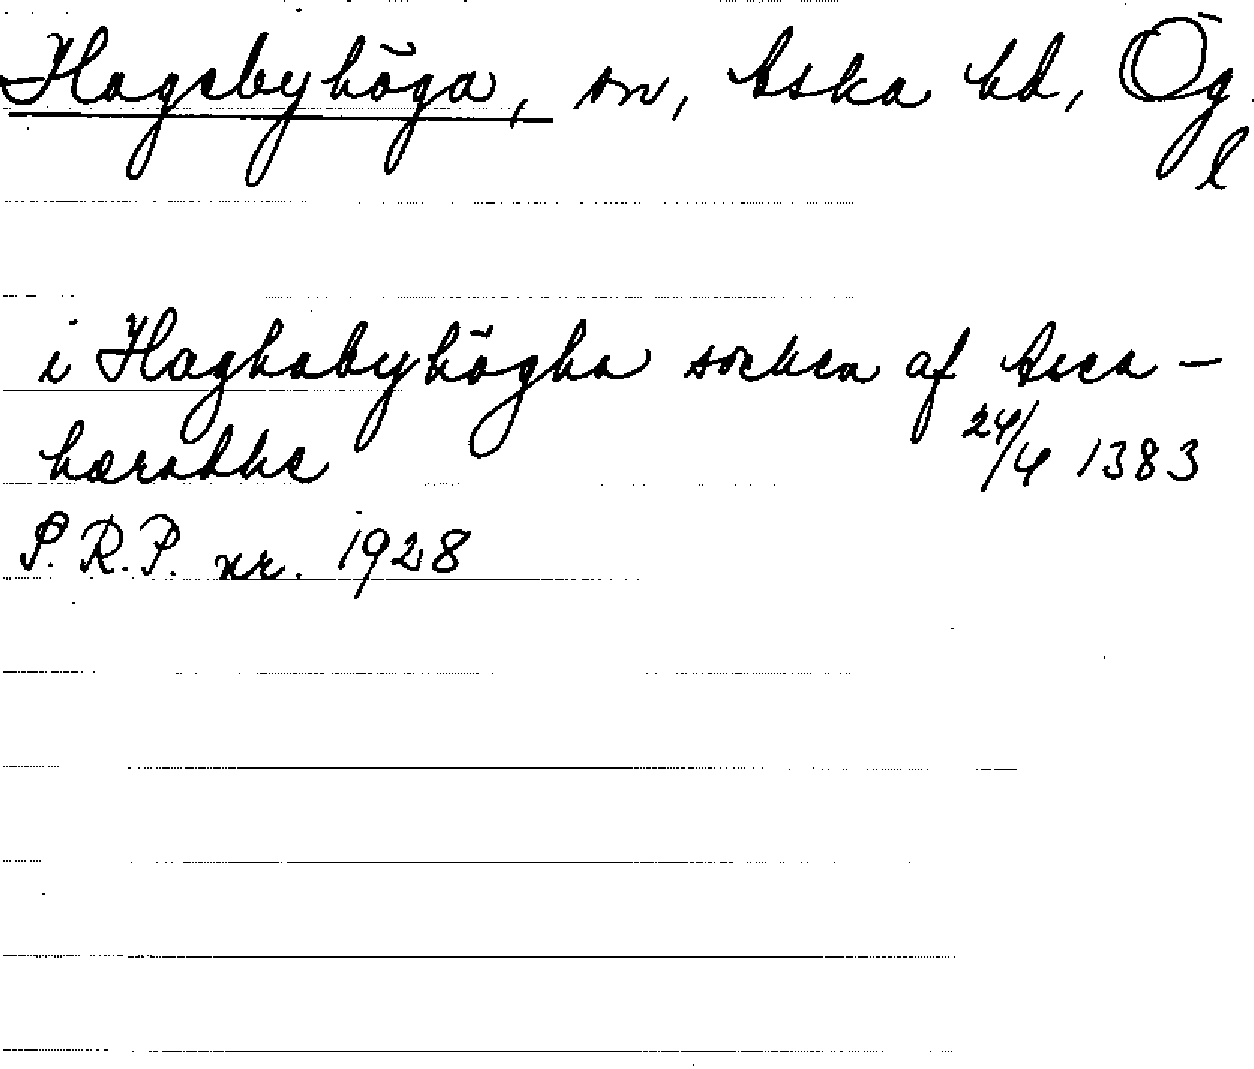 Hagebyhöga, sn, Aska hd, Ög.
l
i Haghabyhögha socken af Asca -
hæradhe 24/4 1383
S.R.P. nr. 1928